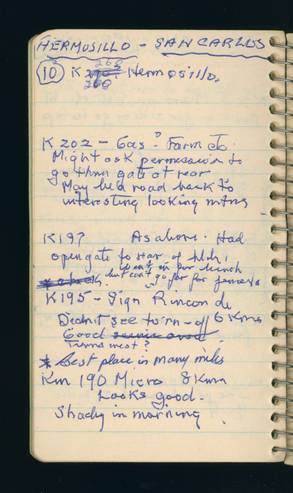 HERMOSILLO - SAN CARLOS
268
10 K Hermosillo.
268
K202 - Gas? Farm Jo
Might ask permission to
go thru gate at rear
May be a road back to
interesting looking mtns
K197 As above. Had
open gate to rear of bldn;
went in for lunch
but can't go far for
K195 - Sign Rincon de
Didn't see turn-off 6 Kms
Good
Turns west?
* Best place in many miles
Km 190 Micro 8 Kmn
Looks good.
Shady in morning